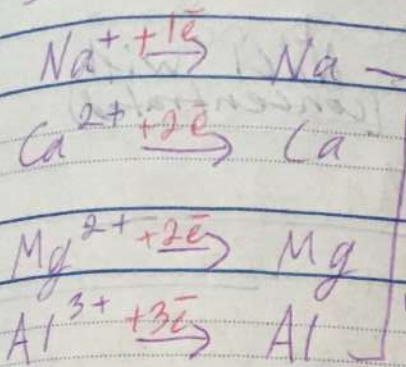 Na⁺ +1ē → Na
Ca²⁺ +2ē → Ca
Mg²⁺ +2ē → Mg
Al³⁺ +3ē → Al